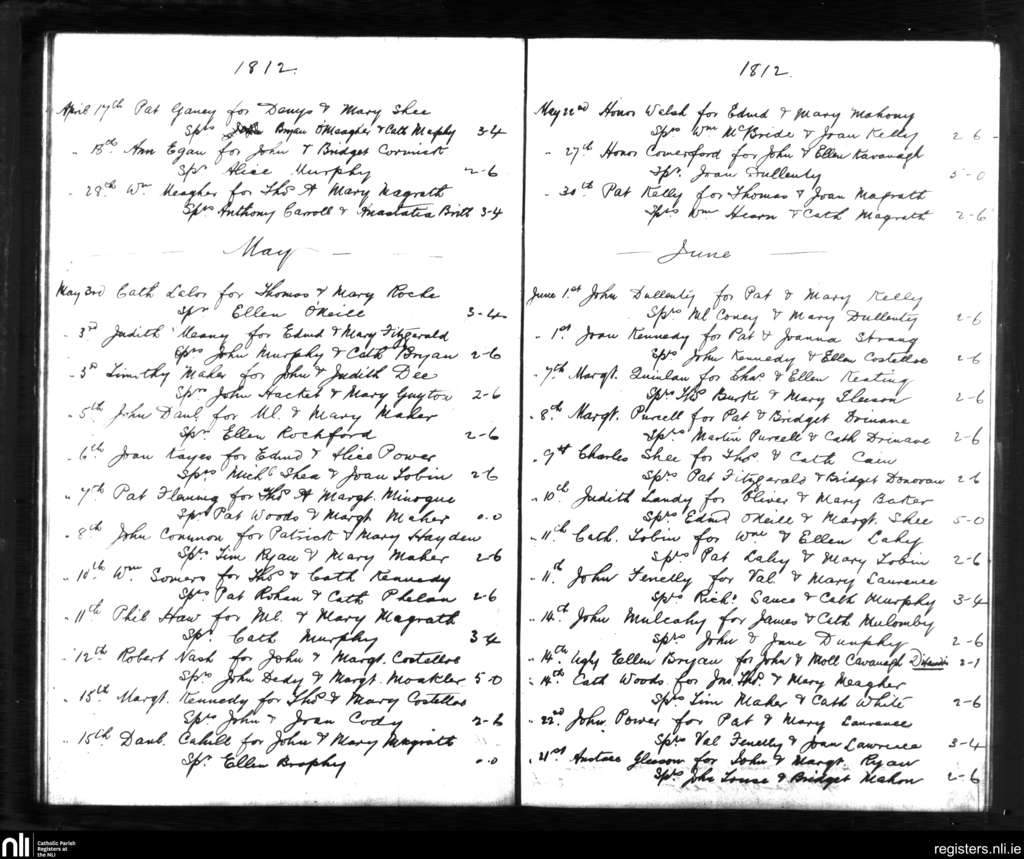 1812
April 17th Pat Ganey for Denys & Mary Shee
Sprs Bryan O'Meagher & Cath Murphy 3-4
" 18th Ann Egan for John & Bridget Cormick
Spr Alice Murphy 2-6
" 28th Wm Meagher for Thos & Mary Magrath
Sprs Anthony Carroll & Anastatia Britt 3-4
May
May 3rd Cath Lalor for Thomas & Mary Roche
Spr Ellen O'Neill 3-4
" 3rd Judith Meany for Edmd & Mary Fitzgerald
Sprs John Murphy & Cath Bryan 2-6
" 3rd Timothy Maher for John & Judith Dee
Sprs John Hacket & Mary Guyton 2-6
" 5th John Danl for Ml. & Mary Maher
Spr Ellen Rochford 2-6
" 6th Joan Kayes for Edmd & Alice Power
Sprs Michl Shea & Joan Tobin 2-6
" 7th Pat Fleming for Thos & Margt. Minogue
Sprs Pat Woods & Margt. Maher 0-0
" 8th John Common for Patrick & Mary Hayden
Sprs Tim Ryan & Mary Maher 2-6
" 10th Wm Somers for Thos & Cath Kennedy
Sprs Pat Rohan & Cath Phelan 2-6
" 11th Phil Haw for Ml. & Mary Magrath
Spr Cath Murphy 3-4
" 12th Robert Nash for John & Margt. Costelloe
Sprs John Dedy & Margt. Moakler 5-0
" 15th Margt. Kennedy for Thos & Mary Costelloe
Sprs John & Joan Cody 2-6
" 15th Danl. Cahill for John & Mary Magrath
Spr Ellen Brophy 0-0
1812.
May 22nd Honor Welsh for Edmd & Mary Mahony
Sprs Wm McBride & Joan Kelly 2-6
" 27th Honor Comerford for John & Ellen Kavanagh
Spr. Joan Dullenty 5-0
" 30th Pat Kelly for Thomas & Joan Magrath
Sprs Wm Hearn & Cath Magrath 2-6
June
June 1st John Dullenty for Pat & Mary Kelly
Sprs Ml Coney & Mary Dullenty 2-6
" 1st Joan Kennedy for Pat & Joanna Strang
Sprs John Kennedy & Ellen Costelloe 2-6
" 7th Margt. Quinlan for Chas. & Ellen Keating
Sprs Thos Burke & Mary Gleeson 2-6
" 8th Margt. Purcell for Pat & Bridget Drinane
Sprs Martin Purcell & Cath Drinane 2-6
" 9th Charles Shee for Thos & Cath Cain
Sprs Pat Fitzgerald & Bridget Donovan 2-6
" 10th Judith Landy for Oliver & Mary Baker
Sprs Edmd O'Neill & Margt. Shee 5-0
" 11th Cath. Tobin for Wm & Ellen Lahy
Sprs Pat Lahy & Mary Tobin 2-6
" 11th John Fenelly for Val. & Mary Laurence
Sprs Richd Sauce & Cath Murphy 3-4
" 14th John Mulcahy for James & Cath Mulomby
Sprs John & Jane Dunphy 2-6
" 14th Ugly Ellen Bryan for John & Moll Cavanagh 2-1
" 14th Cath Woods for Jns. Thos. & Mary Meagher
Sprs Tim Maher & Cath White 2-6
" 22nd John Power for Pat & Mary Laurence
Sprs Val Fenelly & Joan Lawrence 3-4
" 21st Anstace Gleeson for John & Margt. Ryan
Sprs John & Bridget Mahon 2-6
nli Catholic Parish
Registers at
the NLI
registers.nli.ie